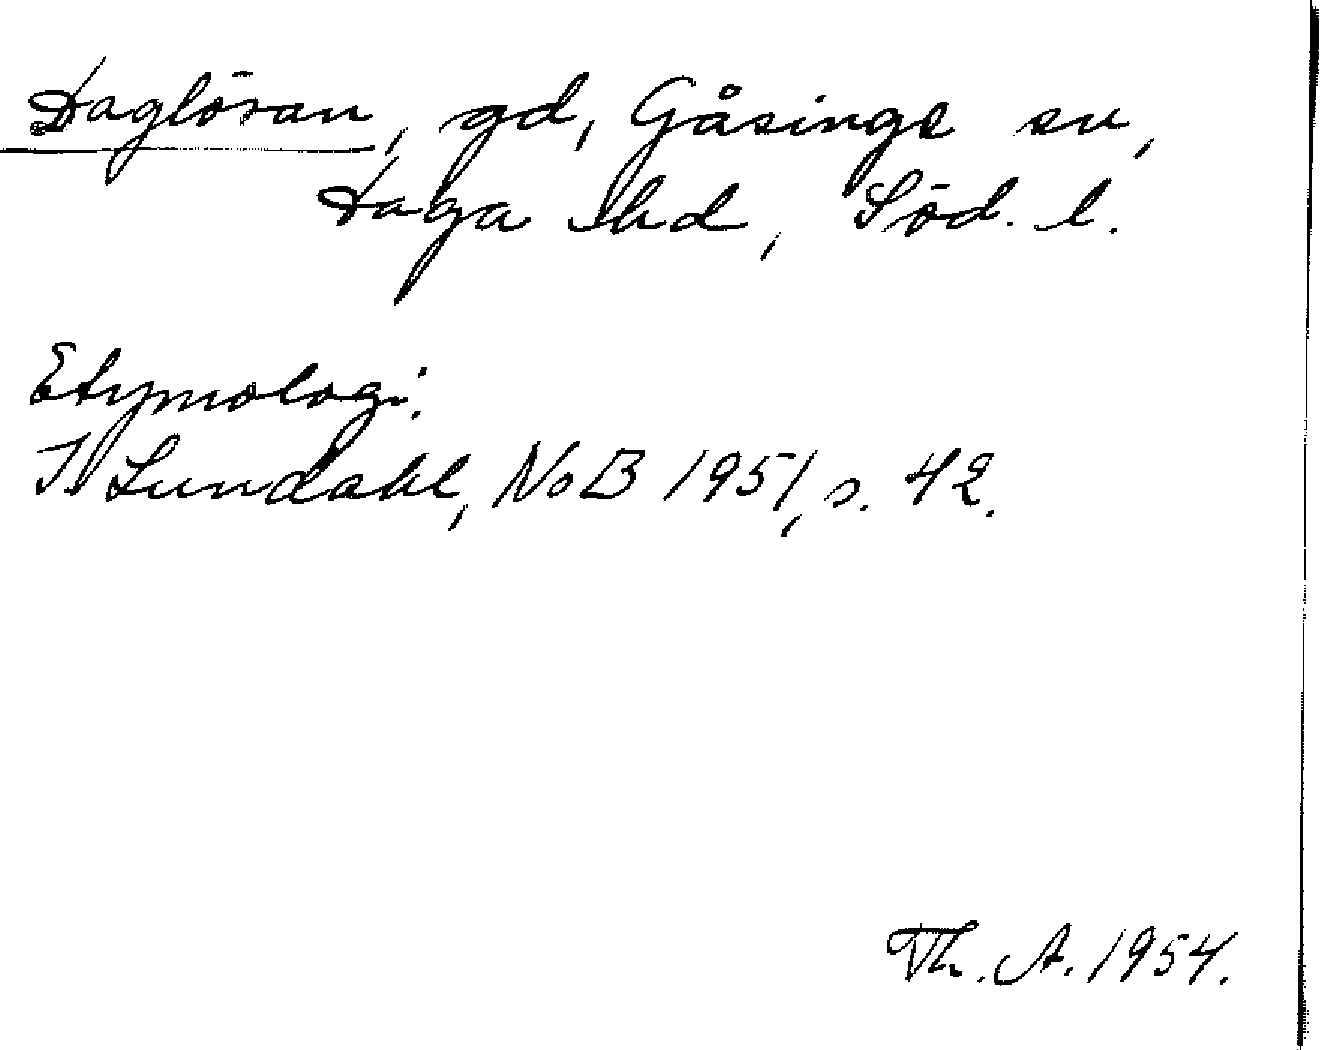 Daglösan, gd, Gåsinge sn,
Daga hd, Söd. l.
Etymologi.
I. Lundahl, NoB 1951, s. 42.
Th. A. 1954.